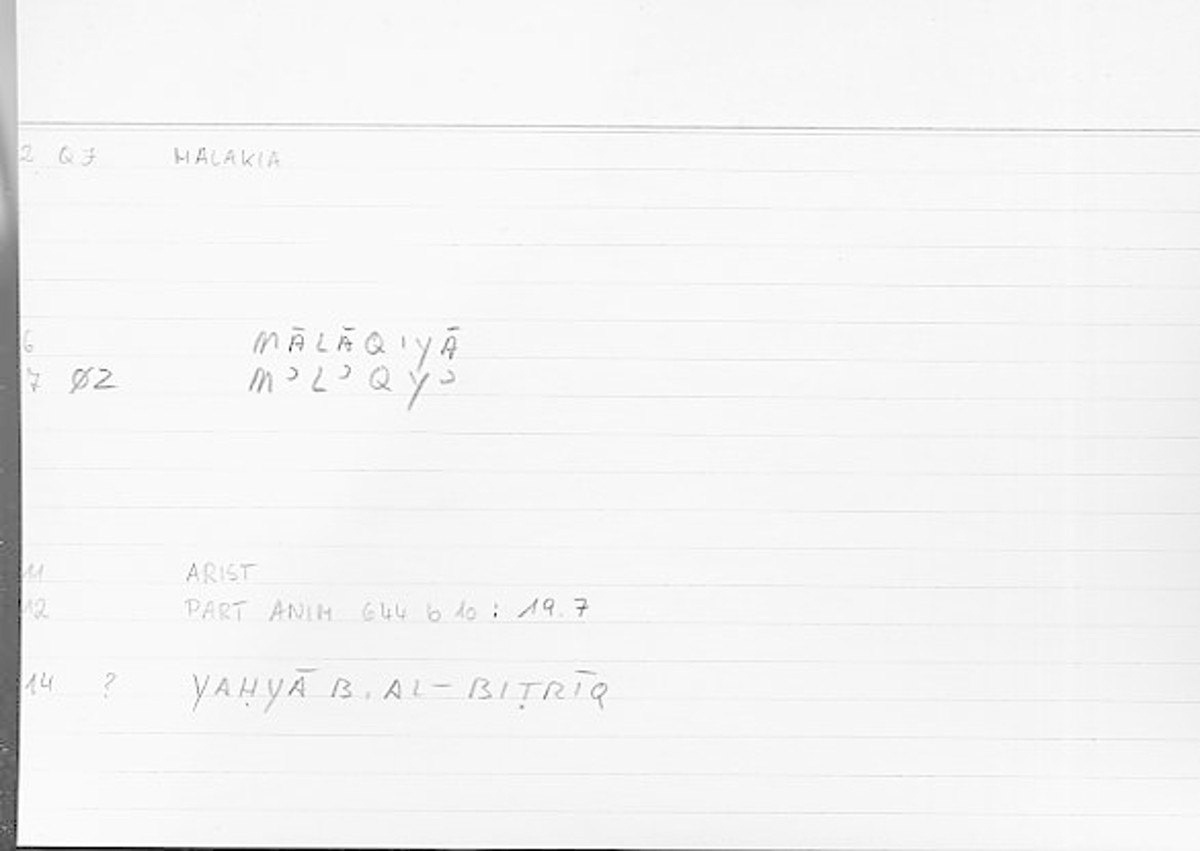 2 Q7 MALAKIA
6 MĀLĀQIYĀ
7 Ø2 MʾLʾQYʾ
11 ARIST
12 PART ANIM 644 b 10 : 19.7
14 ? YAḤYĀ B. AL-BIṬRĪQ